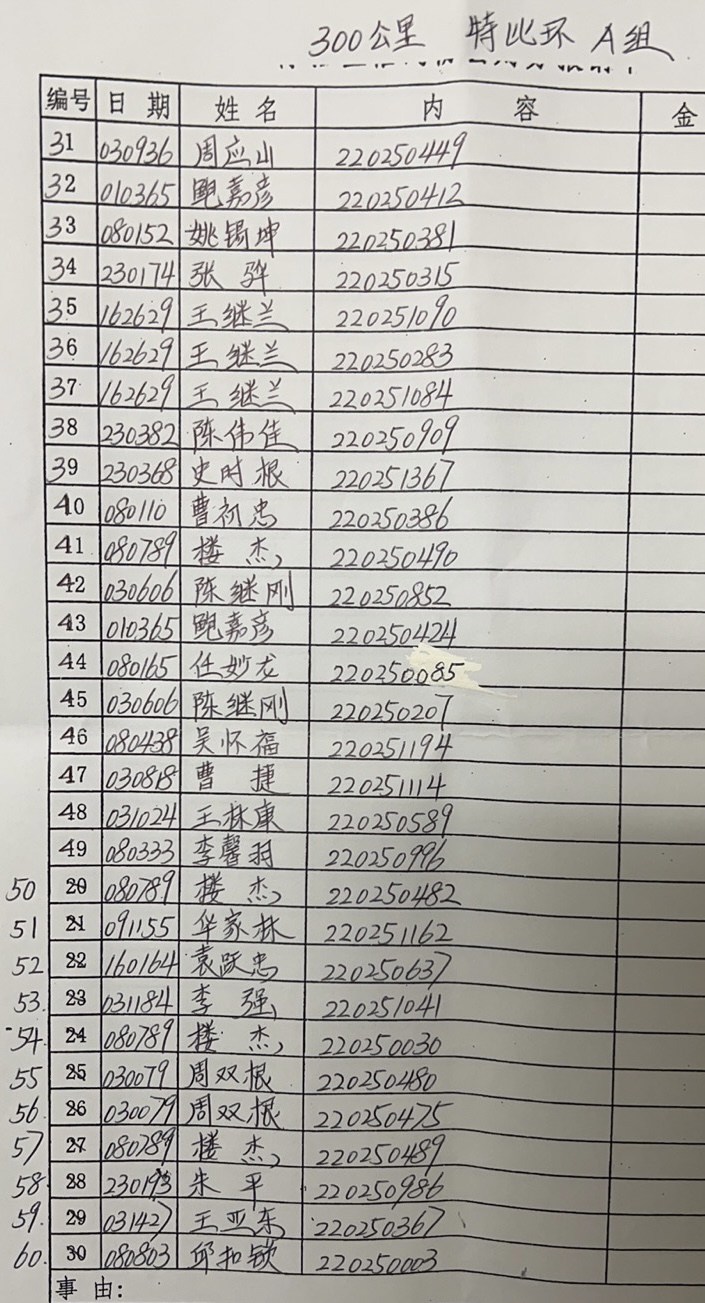 300公里 特比环 A组
编号 日期 姓名 内容 金
31 030936 周应山 220250449
32 010365 鲍嘉彦 220250412
33 080152 姚锡坤 220250381
34 230174 张骅 220250315
35 162629 王继兰 220251090
36 162629 王继兰 220250283
37 162629 王继兰 220251084
38 230382 陈伟佳 220250909
39 230368 史时根 220251367
40 080110 曹初忠 220250386
41 080789 楼杰 220250490
42 030606 陈继刚 220250852
43 010365 鲍嘉彦 220250424
44 080165 任妙龙 220250085
45 030606 陈继刚 220250207
46 080438 吴怀福 220251194
47 030818 曹捷 220251114
48 031024 王林康 220250589
49 080333 李馨羽 220250996
50 20 080789 楼杰 220250482
51 21 091155 华家林 220251162
52 22 160164 袁跃忠 220250637
53 23 031184 李强 220251041
54 24 080789 楼杰 220250030
55 25 030079 周双根 220250480
56 26 030079 周双根 220250475
57 27 080789 楼杰 220250489
58 28 230193 朱平 220250986
59 29 031427 王亚东 220250367
60 30 080803 邱扣锁 220250003
事由: